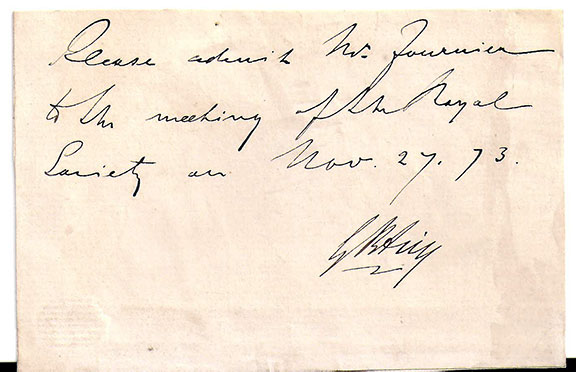 Please admit Mr. Fournier
to the meeting of the Royal
Society on Nov. 27. 73.
G B Airy